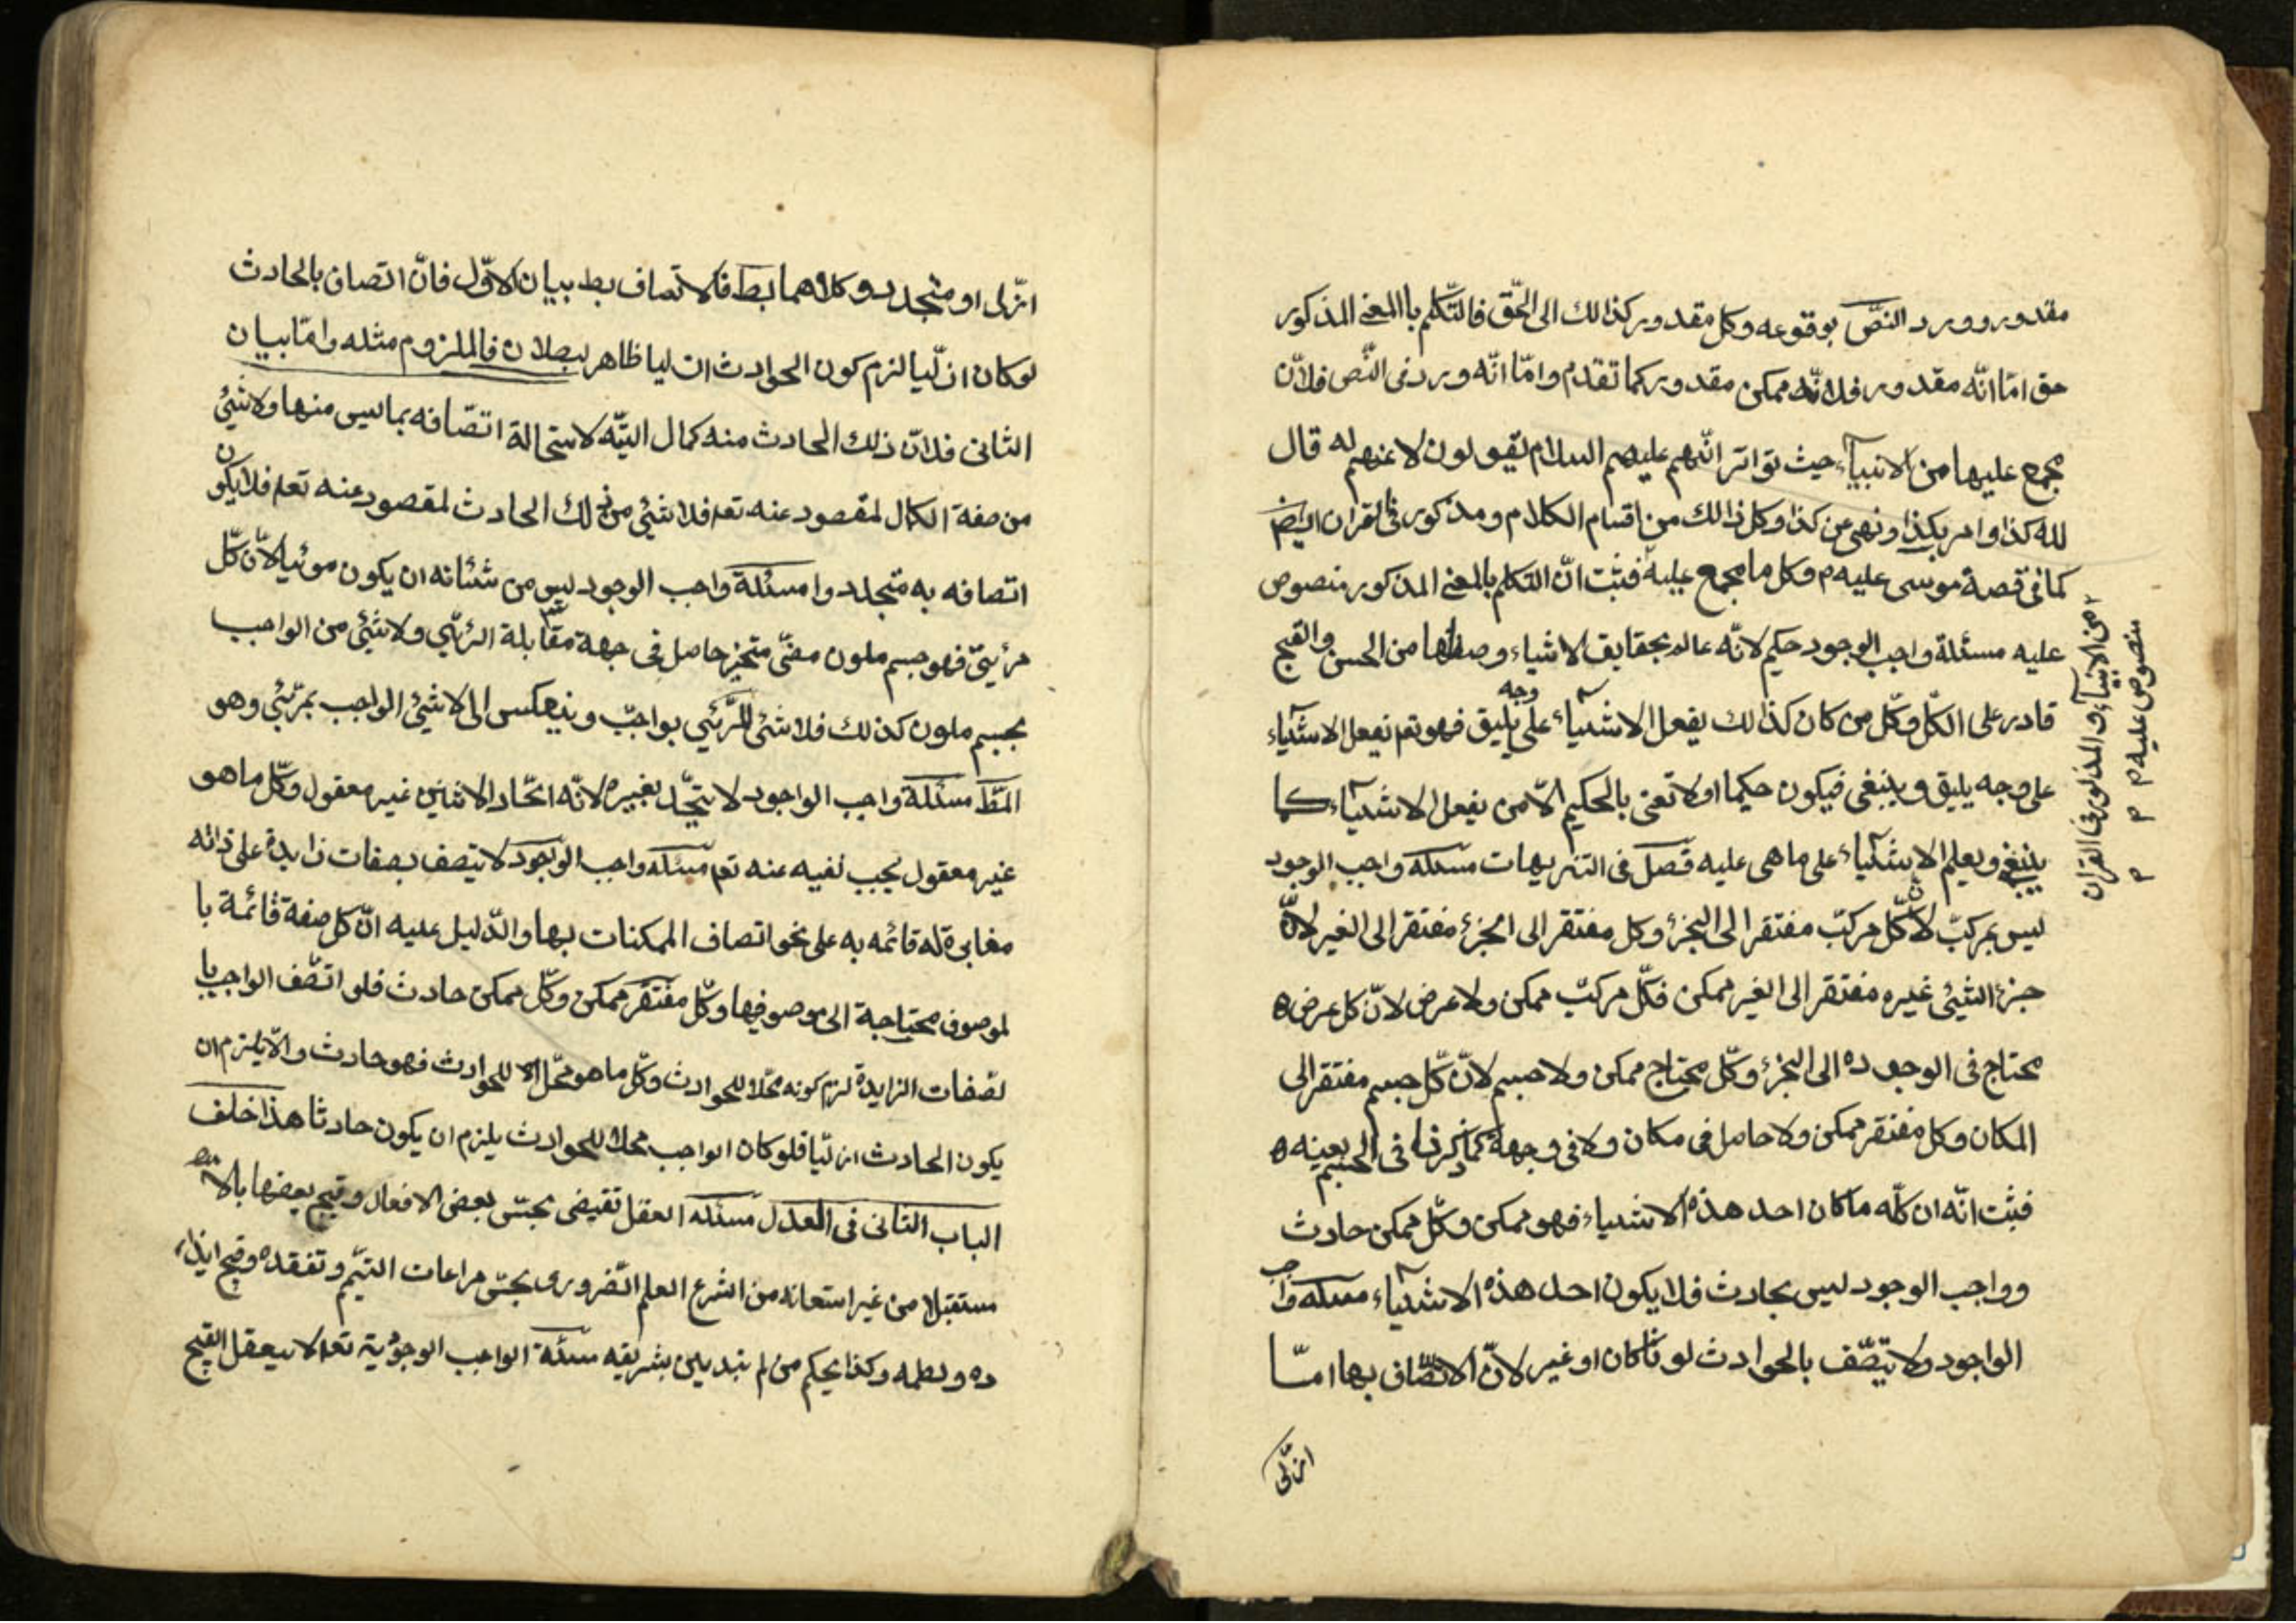 مقدور وورد النصّ بوقوعه وكل مقدور كذالك الى الحّق فالتّكلم با المعنى المذكور
حق امّا انّه مقدور فلانّه ممكن مقدور كما تقدم وامّا انّه ورد فى النّص فلانّ
مجمع عليها من الانبيآء حيث تواتر انّهم عليهم السلام يقولون لاعنهم له قال
لله كذا وامر بكذا ونهى من كذا وكل ذالك من اقسام الكلام ومذكور فى القران ايض
كما فى قصة موسى عليه م وكل ما مجمع عليه فثبت انّ التكلم بالمعنى المذكور منصوص
عليه مسئلة واجب الوجود حكيم لانّه عالم بحقايق الاشياء وصفاتها من الحسن والقبح
قادر على الكلّ وكلّ من كان كذالك يفعل الاشيآء على وجه يليق فهو تعم يفعل الاشيآء
على وجه يليق وينبغى فيكون حكيما اولا تعنى بالحكيم الّا من يفعل الاشيآء كما
ينبغى ويعلم الاشيآء على ما هى عليه فصل فى التنزيهات مسئلة واجب الوجود
ليس بمركبّ لانّ كلّ مركبّ مفتقر الى الجزء وكل مفتقر الى الجزء مفتقر الى الغير لانّ
جزء الشيئى غيره مفتقر الى الغير ممكن فكلّ مركبّ ممكن ولا عرض لانّ كل عرض
محتاج فى الوجود الى الجزء وكلّ محتاج ممكن ولا جسم لانّ كلّ جسم مفتقر الى
المكان وكل مفتقر ممكن ولا حاصل فى مكان ولا فى وجهة كما ذكرنا فى الجسم بعينه
فثبت انّه ان كلّه ما كان احد هذه الاشياء فهو ممكن وكلّ ممكن حادث
وواجب الوجود ليس بحادث فلا يكون احد هذه الاشيآء مسئله واجب
الواجود ولا يتّصف بالحوادث لو ناكان او غير لانّ الاتّصاف بها امّا
ازلّى
من الانبيآء والمذكور فى القران
منصوص عليه م
ازّلى او متجدد وكلاهما بط فلاتصاف بط بيان الاوّل فانّ اتصاف بالحادث
لوكان ازلّيا لزم كون الحوادث ازليا ظاهر لبطلان فالملزوم مثله وامّا بيان
الثانى فلانّ ذلك الحادث منه كمال اليّه لاستحالة اتصّافه بما ليس منها ولا شيئ
من صفة الكمال لمقصود عنه تعم فلا شيئى من ذلك الحادث لمقصود عنه تعم فلا يكون
اتصافه به متجلد وا مسئلة واجب الوجود ليس من شئانه ان يكون موئيا لانّ كلّ
مرئيّ فهو جسم ملون مضئّ متحيز حاصل فى جهة مقابلة الرئّي ولا شئى من الواجب
بجسم ملون كذلك فلا شئى للرّئي بواجبّ وينعكس الى لا شيئى الواجب بمرّئي وهو
المط مسئلة واجب الواجود لا يتحّد بغيره لانّه اتحّاد الاثنين غير معقول وكلّ ما هو
غير معقول يجب نفيه عنه تعم مسئله واجب الوجود لا يتصف بصفات زايدة على ذاته
مغايرة له قائمه به على نحو اتصاف الممكنات بها والدّليل عليه انّ كل صفة قائمة با
لموصوف محتاجة الى موصوفيها وكلّ مفتقر ممكن وكلّ ممكن حادث فلو اتصّف الواجب با
لصّفات الزايدة لزم كونه محّلا للحوادث وكلّ ما هو محّل للحوادث فهو حادث والّا يلزم ان
يكون الحادث ازليّا فلو كان الواجب محلا للحوادث يلزم ان يكون حادثا هذا خلف
الباب الثانى فى العدل مسئله العقل تقيضى بحسّن بعض الافعال وقبح بعضها بالا
مستقبلا من غير استعانه من الشرع العلم الضّرورى بحسّن مراعات اليتيم وتفقده وقبح ايذاء
ده ولطمه وكذا يحكم من لم يتدين بشريقه مسئلة الواجب الوجودية تعم لا يعقل القبح